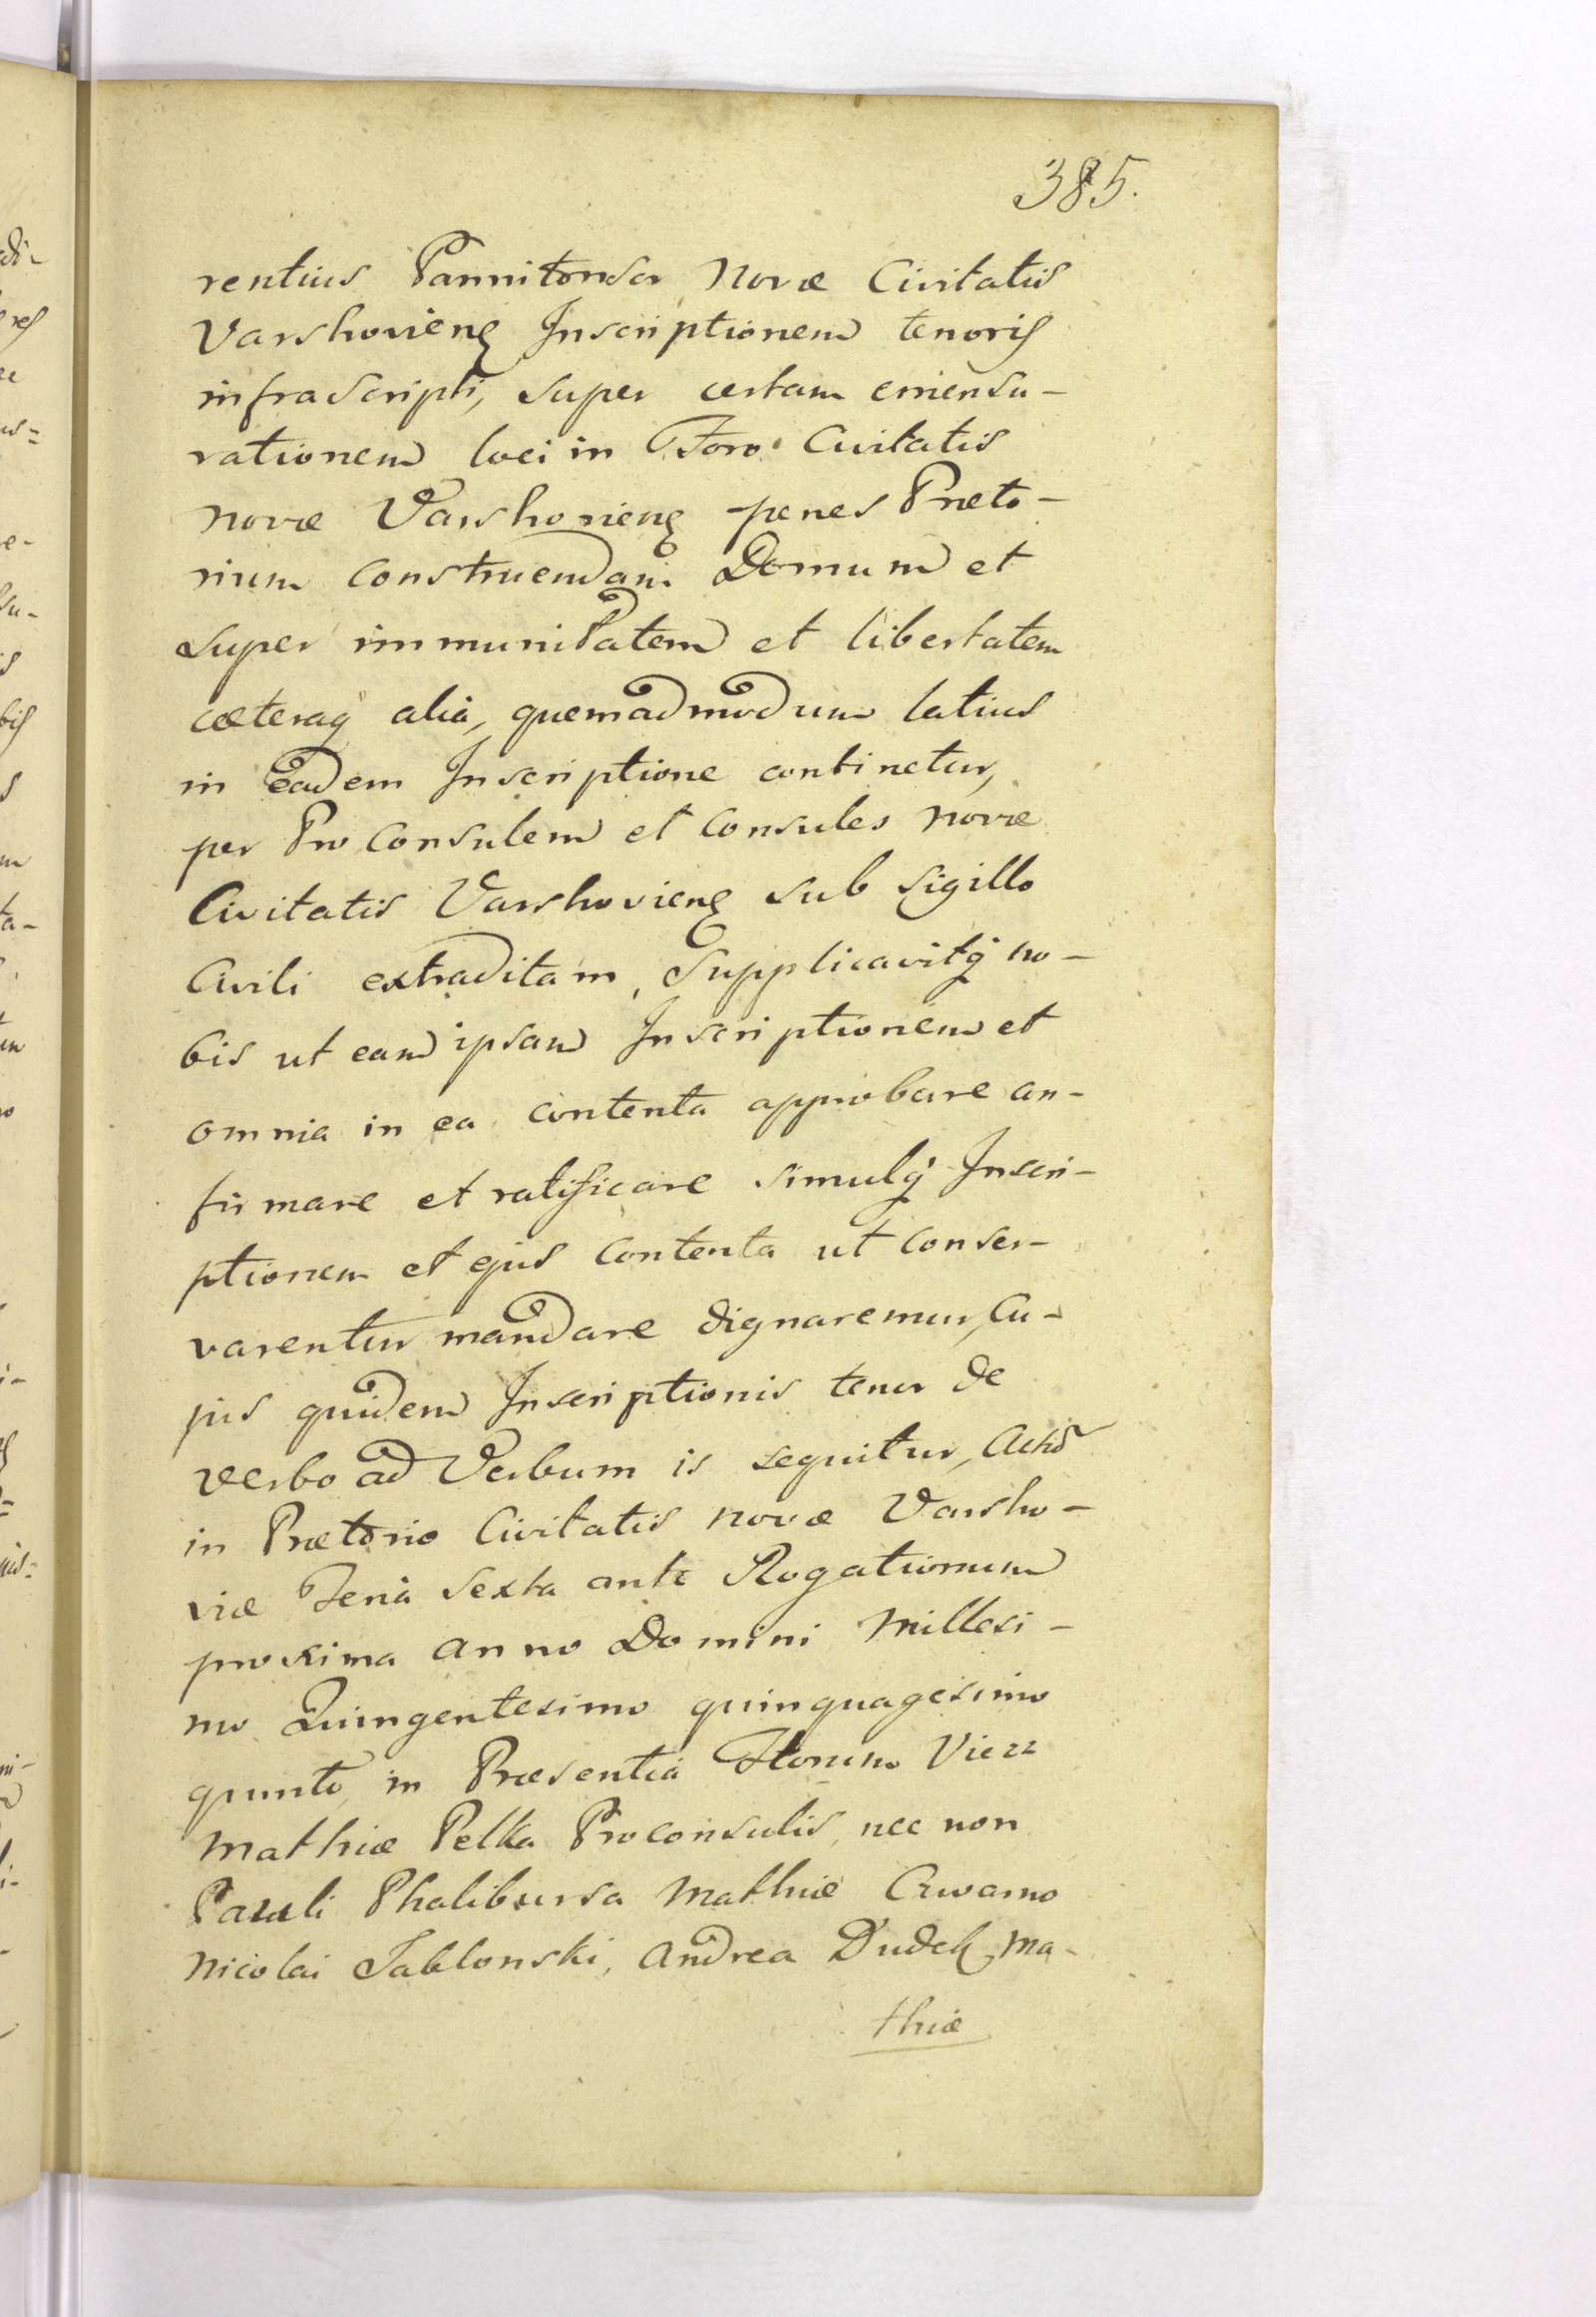 385.
rentius Pannitonsor Novæ Civitatis
Varshoviens Inscriptionem tenoris
infrascripti, super certam emensu-
rationem loci in Foro Civitatis
novæ Varshoviens penes Præto-
rium construendam Domum et
super immunitatem et libertatem
cæteraq alia, quemadmodum latius
in eadem Inscriptione continetur,
per Pro Consulem et Consules novæ
Civitatis Varshoviens sub sigillo
Civili extraditam, Supplicavitq no-
bis ut eam ipsam Inscriptionem et
omnia in ea contenta approbare con-
firmare et ratificare simulq Inscri-
ptionem et ejus contenta ut conser-
varentur mandare dignaremur, Cu-
jus quidem Inscriptionis tenor de
verbo ad Verbum is sequitur, Actū
in Prætorio Civitatis novæ Varsho-
viæ Feria Sexta ante Rogationum
proxima anno Domini Millesi-
mo Quingentesimo quinquagesimo
quinto, in Præsentia Honm
Mathiæ Pelka Proconsulis, nec non
Pauli Phalibursa Mathiæ
Nicolai Jablonski, Andrea Dudek, Ma-
thiæ